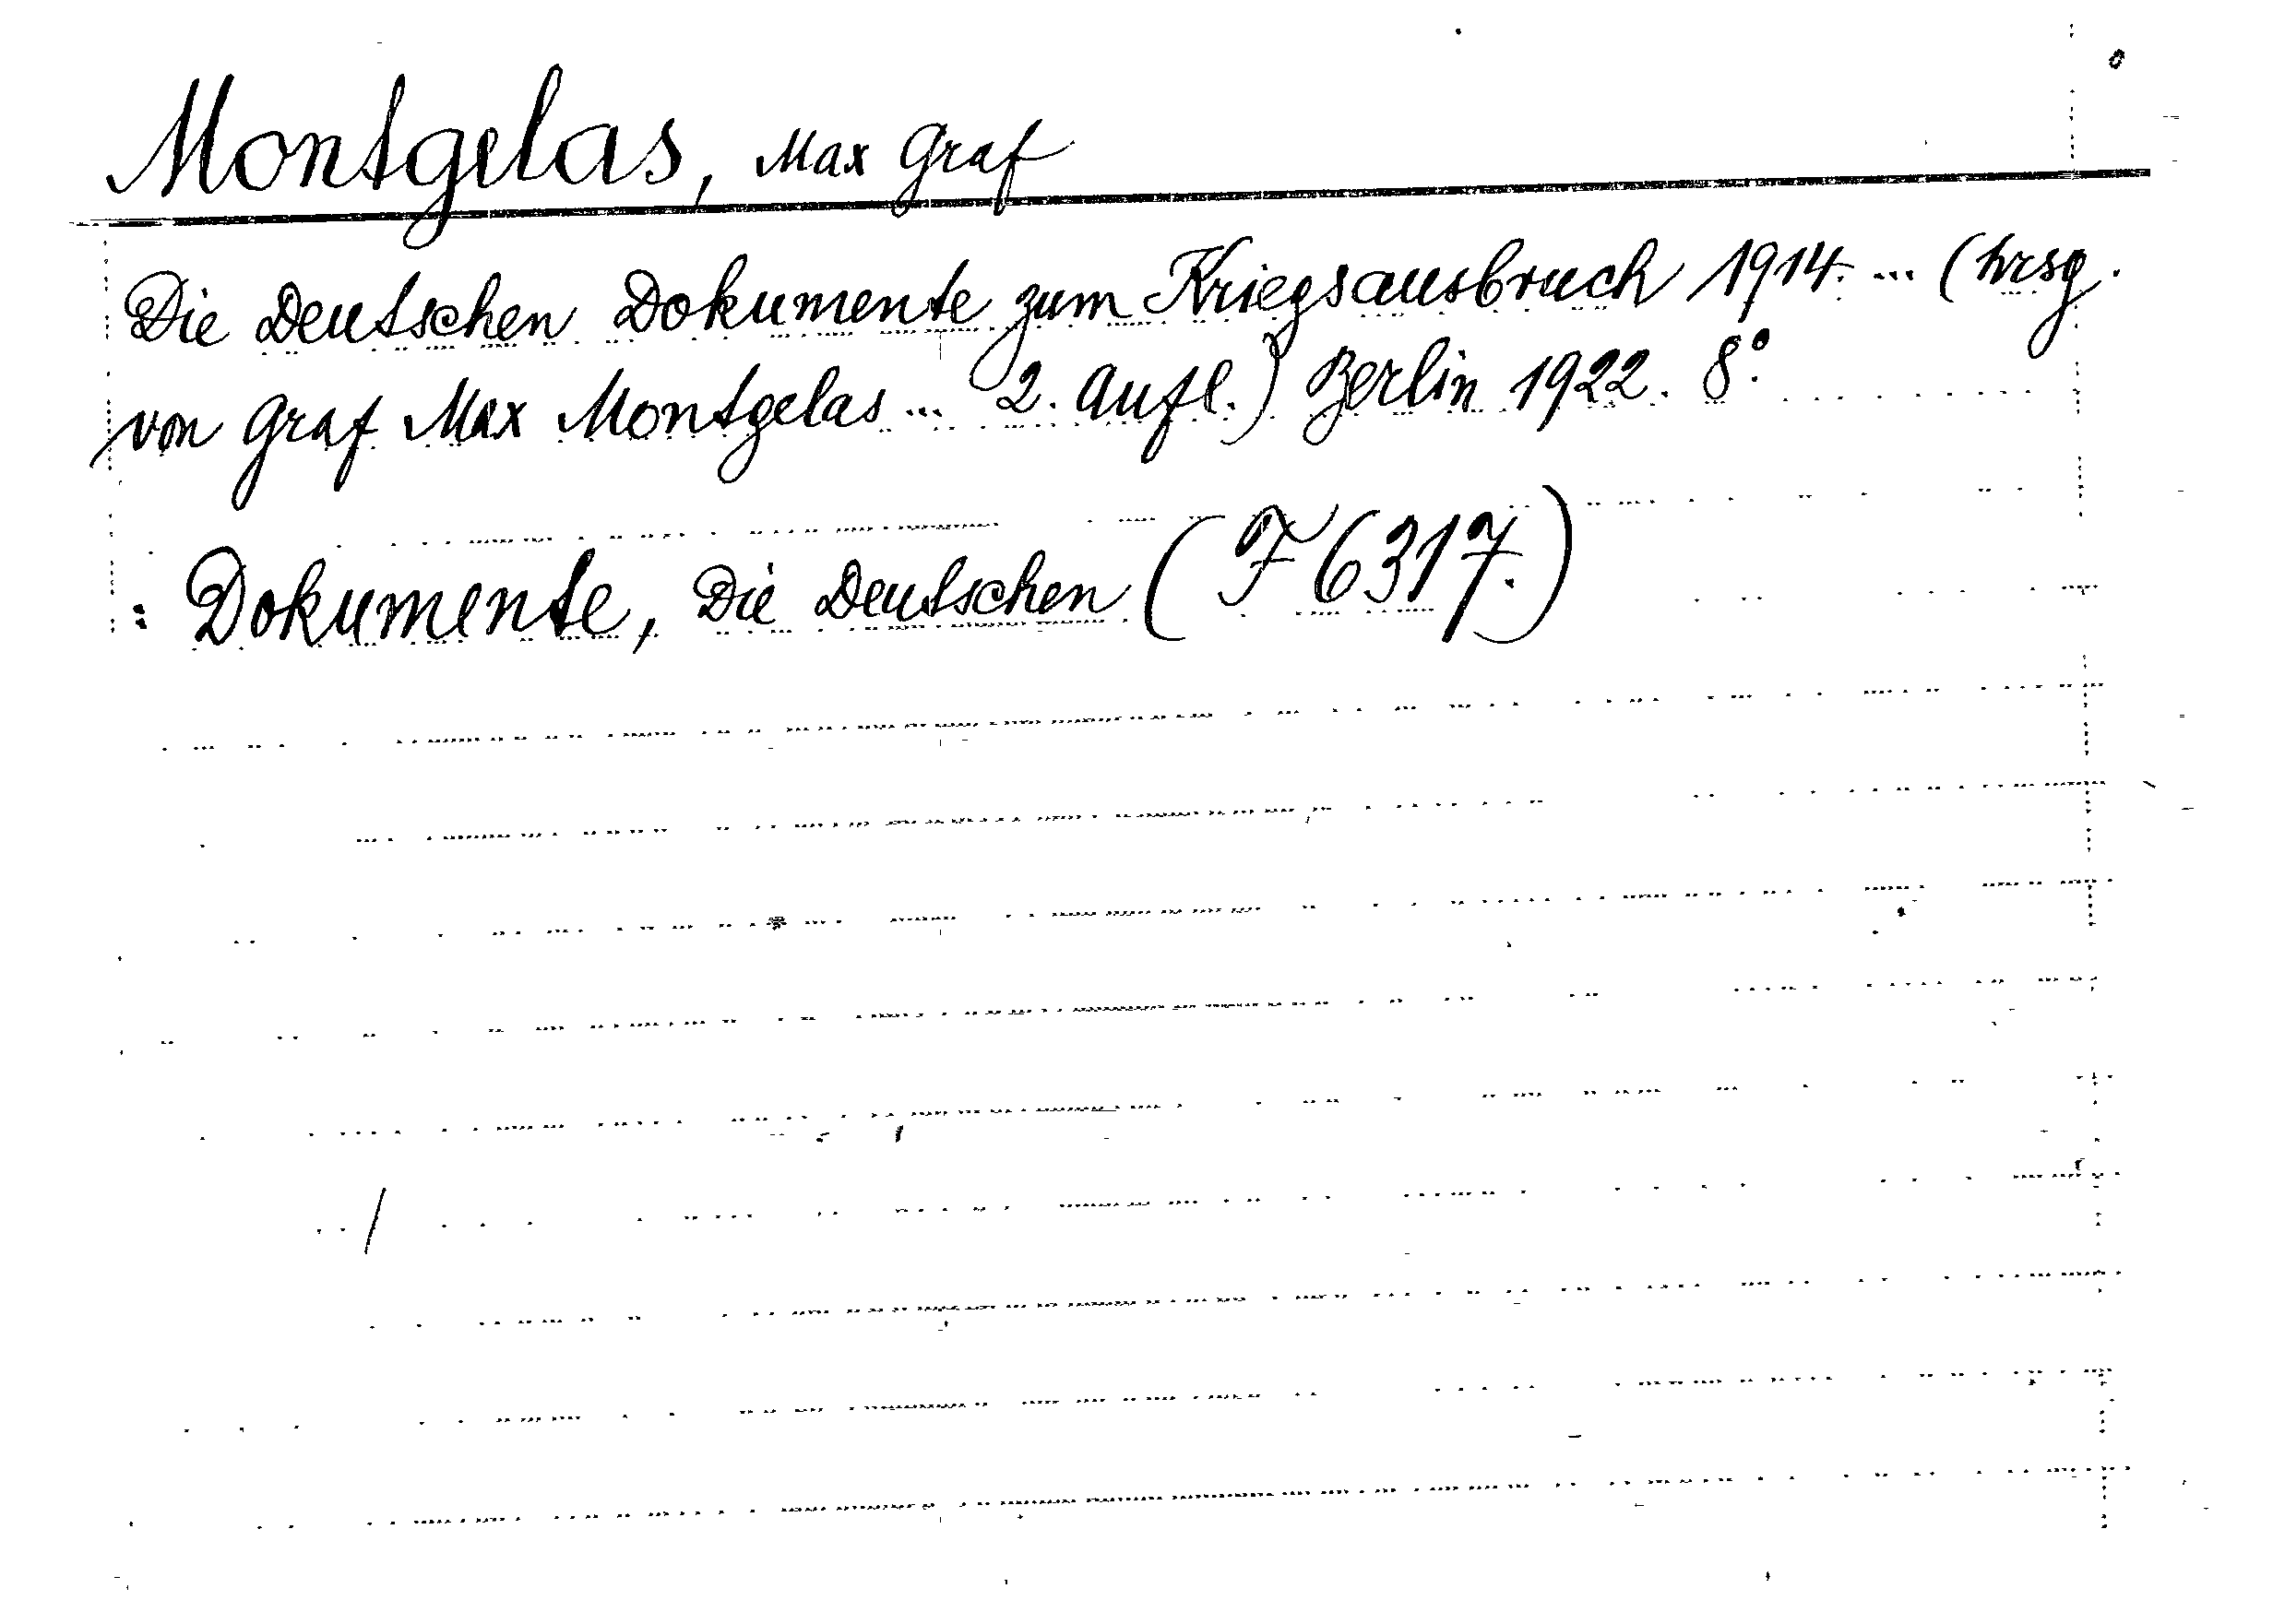 Montgelas, Max Graf
Die Deutschen Dokumente zum Kriegsausbruch 1914. ... (hrsg.
von Graf Max Montgelas ... 2. Aufl.) Berlin 1922. 8°.
: Dokumente, Die Deutschen (F 6317.)